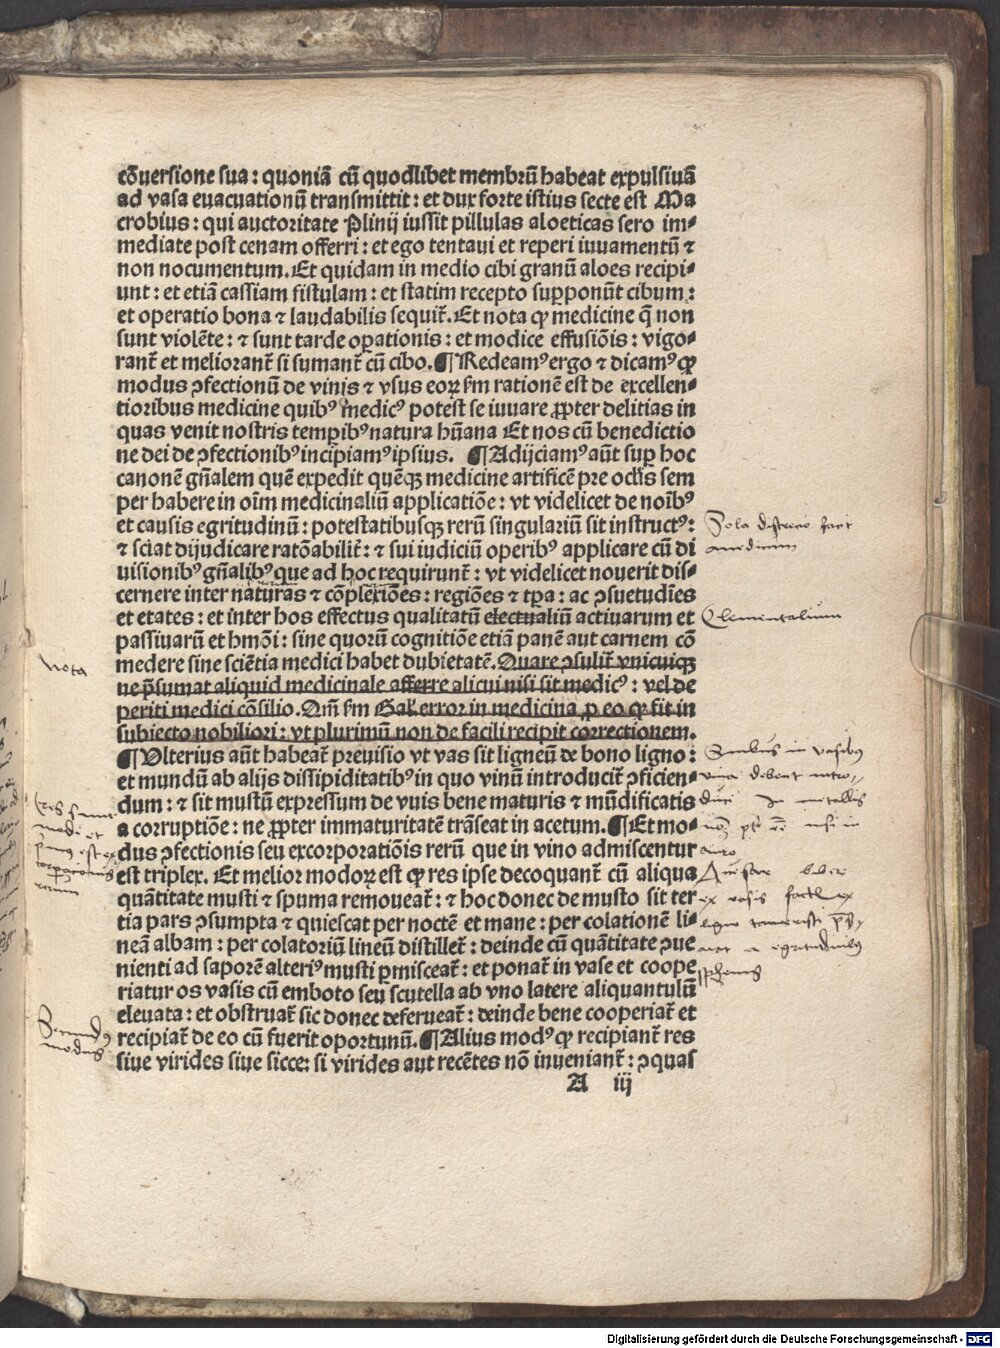 cōuersione sua : quoniā cū quodlibet membrū habeat expulsiuā
ad vasa euacuationū transmittit : et dux forte istius secte est Ma
crobius : qui auctoritate Plinij iussit pillulas aloeticas sero im⸗
mediate post cenam offerri : et ego tentaui et reperi iuuamentū ⁊
non nocumentum. Et quidam in medio cibi granū aloes recipi⸗
unt : et etiā cassiam fistulam : et statim recepto supponūt cibum :
et operatio bona ⁊ laudabilis sequit̄. Et nota ꝙ medicine q̄ non
sunt violēte : ⁊ sunt tarde oꝑationis : et modice effusiōis : vigo⸗
rant̄ et meliorant̄ si sumant̄ cū cibo. ¶ Redeamꝰ ergo ⁊ dicamꝰ ꝙ
modus ꝯfectionū de vinis ⁊ vsus eoꝝ ẜm rationē est de excellen⸗
tioribus medicine quibꝰ medicꝰ potest se iuuare ꝓpter delitias in
quas venit nostris temꝑibꝰ natura hūana Et nos cū benedictio
ne dei de ꝯfectionibꝰ incipiamꝰ ipsius. ¶ Adijciamꝰ aūt suꝑ hoc
canonē gn̄alem quē expedit quēqꝫ medicine artificē pre ocl̄is sem
per habere in oīm medicinaliū applicatiōe : vt videlicet de noībꝰ
et causis egritudinū : potestatibusqꝫ rerū singulariū sit instructꝰ :
⁊ sciat dijudicare ratōabilit̄ : ⁊ sui iudiciū operibꝰ applicare cū di
uisionibꝰ gn̄alibꝰ que ad hoc requirunt̄ : vt videlicet nouerit dis⸗
cernere inter naturas ⁊ cōplexiōes : regiōes ⁊ tꝑa : ac ꝯsuetudīes
et etates : et inter hos effectus qualitatū electualiū actiuarum et
passiuarū et hmōi : sine quorū cognitiōe etiā panē aut carnem cō
medere sine sciētia medici habet dubietatē. Quare ꝯsulit̄ vnicuiqꝫ
ne p̄sumat aliquid medicinale afferre alicui nisi sit medicꝰ : vel de
periti medici cōsilio. Qm̄ ẜm Gal. error in medicina ꝓ eo ꝙ fit in
subiecto nobiliori : vt plurimū non de facili recipit correctionem.
¶ Vlterius aūt habeat̄ preuisio vt vas sit ligneū de bono ligno :
et mundū ab alijs dissipiditatibꝰ in quo vinū introducit̄ ꝯficien⸗
dum : ⁊ sit mustū expressum de vuis bene maturis ⁊ mūdificatis
a corruptiōe : ne ꝓpter immaturitatē trāseat in acetum. ¶ Et mo⸗
dus ꝯfectionis seu excorporatiōis rerū que in vino admiscentur
est triplex. Et melior modoꝝ est ꝙ res ipse decoquant̄ cū aliqua
quātitate musti ⁊ spuma remoueat̄ : ⁊ hoc donec de musto sit ter
tia pars ꝯsumpta ⁊ quiescat per noctē et mane : per colationē li⸗
neā albam : per colatoriū lineū distillet̄ : deinde cū quātitate ꝯue
nienti ad saporē alteriꝰ musti ꝑmisceat̄ : et ponat̄ in vase et coope
riatur os vasis cū emboto seu scutella ab vno latere aliquantulū
eleuata : et obstruat̄ sic donec deferueat̄ : deinde bene cooperiat̄ et
recipiat̄ de eo cū fuerit oportunū. ¶ Alius modꝰ ꝙ recipiant̄ res
siue virides siue sicce: si virides aut recētes nō inueniant̄ : ꝯquas
A iij
Sola discretio facit
medicum
Elementalium
nota
Quibus in vasibus
vina debent intro⸗
duci
Tres sunt
modi
Secundus
modus
Digitalisierung gefördert durch die Deutsche Forschungsgemeinschaft - DFG